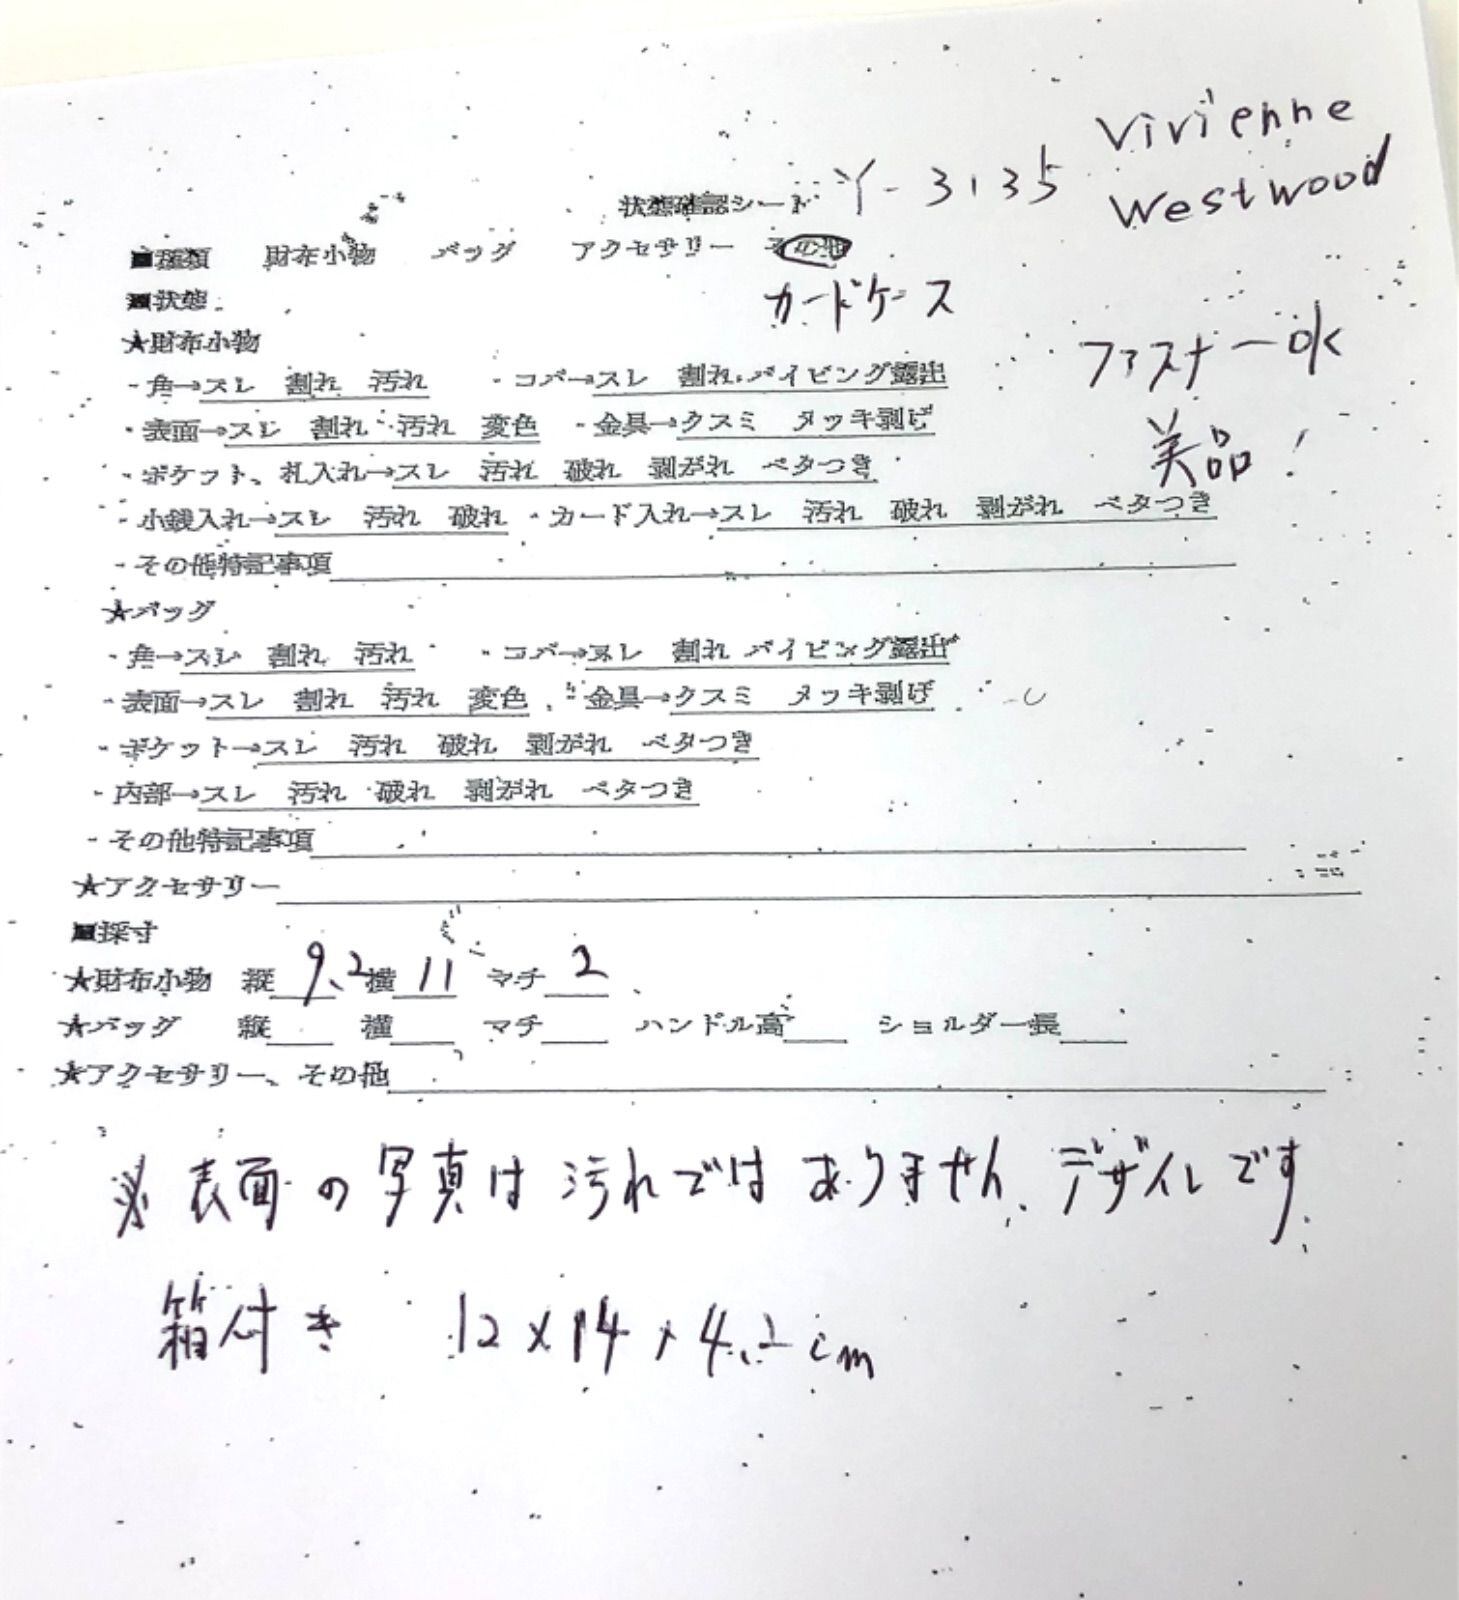 Vivienne
Westwood
状態確認シート Y-3135
■種類 財布小物 バッグ アクセサリー その他
■状態 カードケース
★財布小物
ファスナーok
・角→スレ 割れ 汚れ ・コバ→スレ 割れ パイピング露出
・表面→スレ 割れ 汚れ 変色 ・金具→クスミ メッキ剥げ
美品!
・ポケット、札入れ→スレ 汚れ 破れ 剥がれ ベタつき
・小銭入れ→スレ 汚れ 破れ ・カード入れ→スレ 汚れ 破れ 剥がれ ベタつき
・その他特記事項
★バッグ
・角→スレ 割れ 汚れ ・コバ→スレ 割れ パイピング露出
・表面→スレ 割れ 汚れ 変色 ・金具→クスミ メッキ剥げ
・ポケット→スレ 汚れ 破れ 剥がれ ベタつき
・内部→スレ 汚れ 破れ 剥がれ ベタつき
・その他特記事項
★アクセサリー
■採寸
★財布小物 縦 9.2 横 11 マチ 2
★バッグ 縦 横 マチ ハンドル高 ショルダー長
★アクセサリー、その他
※表面の写真は汚れではありません、デザインです
箱付き 12×14×4.2cm